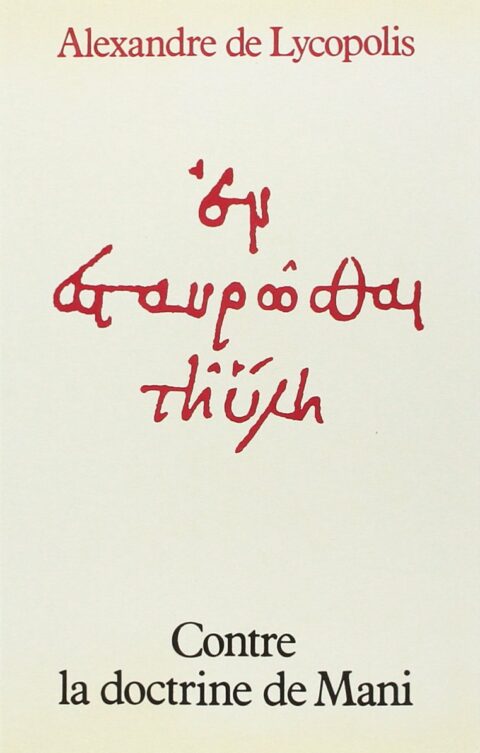 Alexandre de Lycopolis
ἐν
σταυρῶσθαι
τῆ ὕλη
Contre
la doctrine de Mani